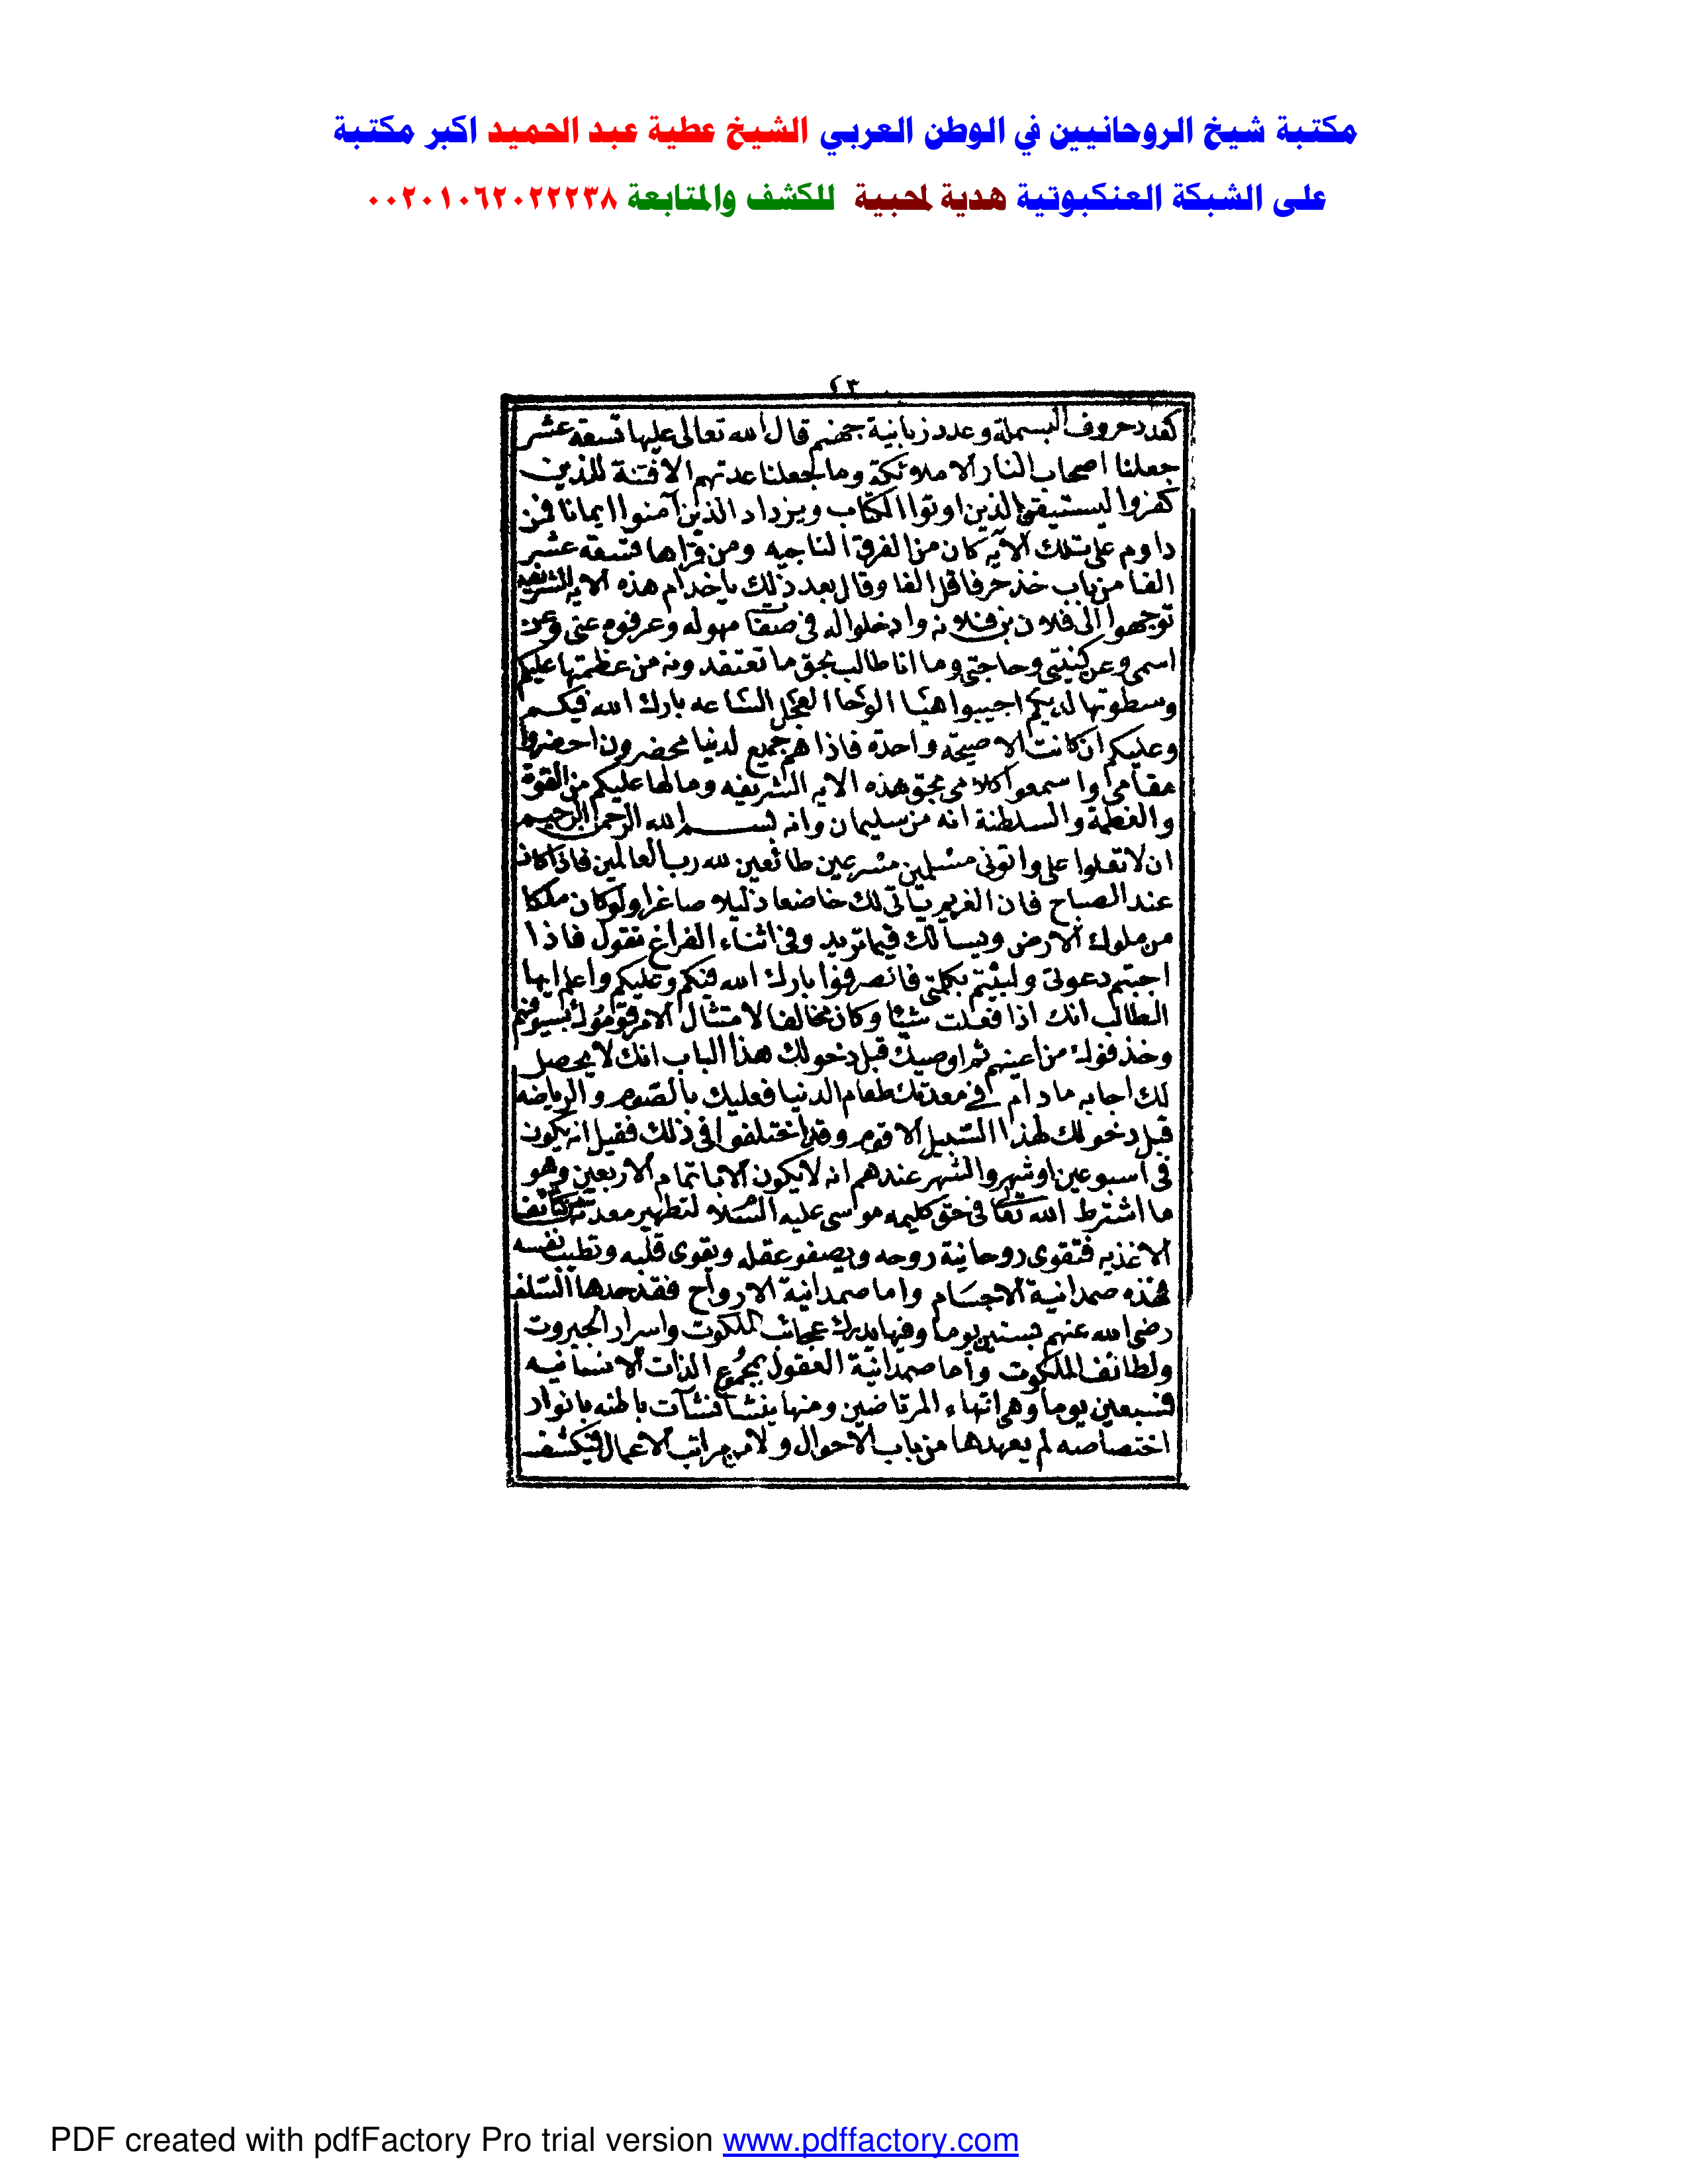 مكتبة شيخ الروحانيين في الوطن العربي الشيخ عطية عبد الحميد اكبر مكتبة
على الشبكة العنكبوتية هدية لمحبية للكشف والمتابعة ٠٠٢٠١٠٦٢٠٢٢٢٣٨
٤٣
كعدد حروف البسملة وعدد زبانية جهنم قال الله تعالى عليها تسعة عشر
جعلنا اصحاب النار الا ملائكة وما جعلنا عدتهم الا فتنة للذين
كفروا ليستيقن الذين اوتوا الكتاب ويزداد الذين آمنوا ايمانا فمن
داوم على تلك الآيه كان من الفرق الناجيه ومن قرأها تسعة عشر
الفا من باب خذ حرفا قل الفا وقال بعد ذلك ياخدام هذه الايه الشريفه
توجهوا الى فلان بن فلانه وادخلوا له في صفة مهوله وعرفوه عني وعن
اسمى وعن كنيتى وحاجتى وما انا طالب بحق ما تعتقدونه من عظمتها عليكم
وسطوتها لديكم اجيبوا هيا الوحا العجل الساعه بارك الله فيكم
وعليكم ان كانت الا صيحة واحدة فاذا هم جميع لدينا محضرون احضروا
مقامى واسمعوا كلامى بحق هذه الايه الشريفه وما لها عليكم من القوة
والعظمة والسلطنة انه من سليمان وانه بسم الله الرحمن الرحيم
ان لا تعلوا على واتونى مسلمين مسرعين طائعين لله رب العالمين فاذا كان
عند الصباح فان الغريم يأتى لك خاضعا ذليلا صاغرا ولو كان ملكا
من ملوك الارض ويسألك فيما تريد وفى اثناء الفراغ تقول فاذا
اجبتم دعوتى ولبيتم بكلمتى فانصرفوا بارك الله فيكم وعليكم واعلم ايها
الطالب انك اذا فعلت شيئا وكان مخالفا لامتثال الامر بسيوفهم
وخذ من اعينهم ثم اوصيك قبل دخولك هذا الباب انك لا يحصل
لك اجابه ما دام في معدتك طعام الدنيا فعليك بالصوم والرياضه
قبل دخولك لهذا السبيل الاقوم وقد اختلفوا فى ذلك فقيل انه يكون
فى اسبوعين او شهر والشهر عندهم انه لا يكون الا باتمام الاربعين وهو
ما اشترط الله تعا فى حق كليمه موسى عليه السلا لتطهير معدته من كثائف
الاغذيه فتقوى روحانية روحه ويصفو عقله ويقوى قلبه وتطيب نفسه
فهذه صمدانية الاجسام واما صمدانية الارواح فقد حدها السلف
رضى الله عنهم بستين يوما وفيها يدرك عجائب الملكوت واسرار الجبروت
ولطائف الملكوت واما صمدانية العقول بمجموع الذات الانسانيه
فسبعين يوما وهى انتهاء المرتاضين ومنها ينشأ نشآت باطنه بانوار
اختصاصه لم يعهدها من باب الاحوال ولا من مراتب الاعمال فتكشف
PDF created with pdfFactory Pro trial version www.pdffactory.com